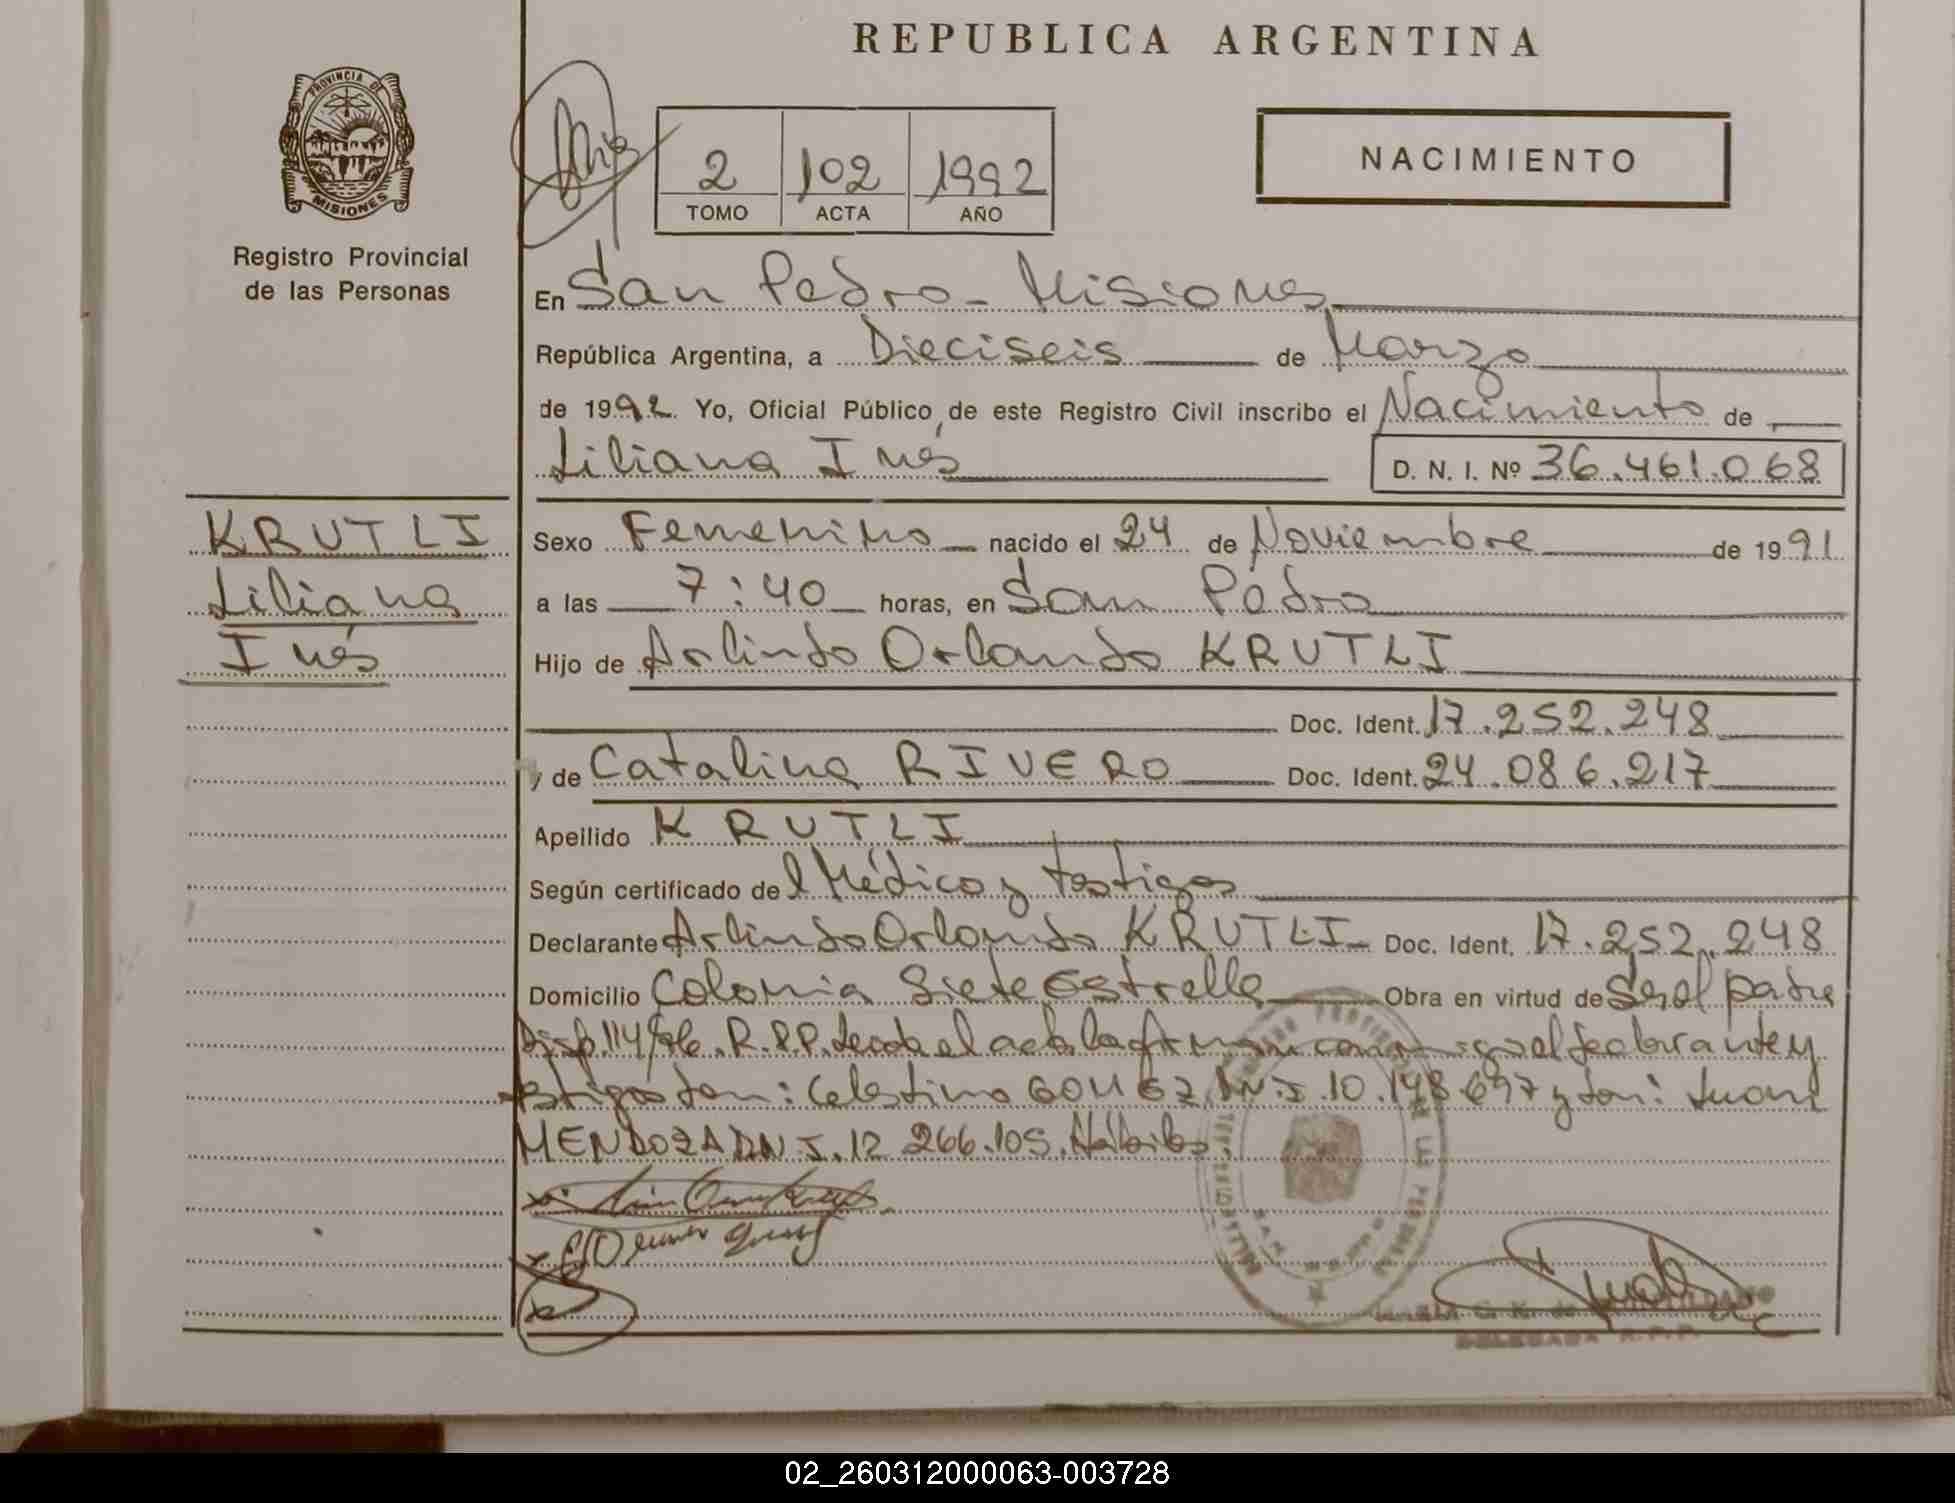 REPUBLICA ARGENTINA
PROVINCIA DE
MISIONES
Registro Provincial
de las Personas
2 102 1992
TOMO ACTA AÑO
NACIMIENTO
En San Pedro - Misiones
República Argentina, a Dieciseis de Marzo
de 1992. Yo, Oficial Público de este Registro Civil inscribo el Nacimiento de
Liliana Inés
D. N. I. Nº 36.461.068
KRUTLI
Liliana
Inés
Sexo Femenino nacido el 24 de Noviembre de 1991
a las 7:40 horas, en San Pedro
Hijo de Arlindo Orlando KRUTLI
Doc. Ident. 17.252.248
y de Catalina RIVERO Doc. Ident. 24.086.217
Apellido KRUTLI
Según certificado del Médico y testigos
Declarante Arlindo Orlando KRUTLI Doc. Ident. 17.252.248
Domicilio Colonia Siete Estrella Obra en virtud de Ser el padre
Disp. 114/86. R.P.P. Leida el acta la firman conmigo el declarante y
testigos Don: Celestino GOMEZ D.N.I. 10.148.697 y Don: Juan
MENDOZA D.N.I. 12.266.105. Hábiles.
DELEGADA R.P.P.
02_260312000063-003728